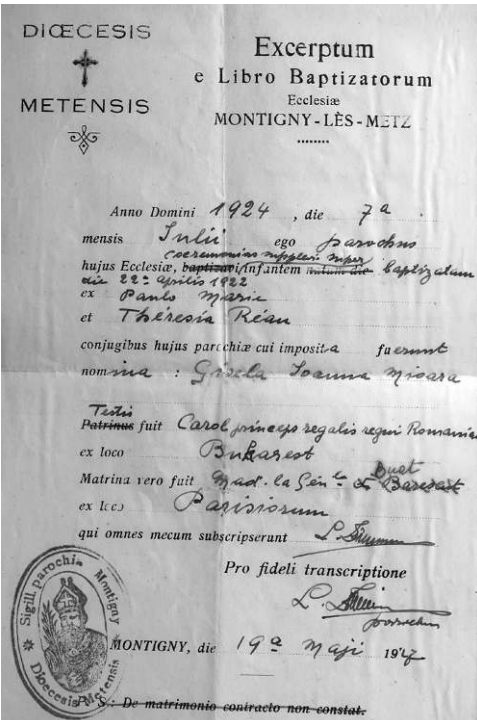 DIŒCESIS
METENSIS
Excerptum
e Libro Baptizatorum
Ecclesiæ
MONTIGNY-LÈS-METZ
Anno Domini 1924, die 7a
mensis Julii ego parochus
coeremonias supplevi super
hujus Ecclesiæ, baptizavi infantem natum die baptizatam
die 22a Aprilis 1922
ex Paulo Marie
et Thérésia Réau
conjugibus hujus parochiæ cui imposita fuerunt
nomina : Gisela Joanna Mioara
Testis
Patrinus fuit Carol princeps regalis regni Romaniae
ex loco Bukarest
Buat
Matrina vero fuit Mad. la Génle
ex loco Parisiorum
qui omnes mecum subscripserunt L.
Pro fideli transcriptione
L.
parochus
MONTIGNY, die 19a Maji 1947
P. S.: De matrimonio contracto non constat.
Sigill. parochia Montigny
Diœcesis Metensis